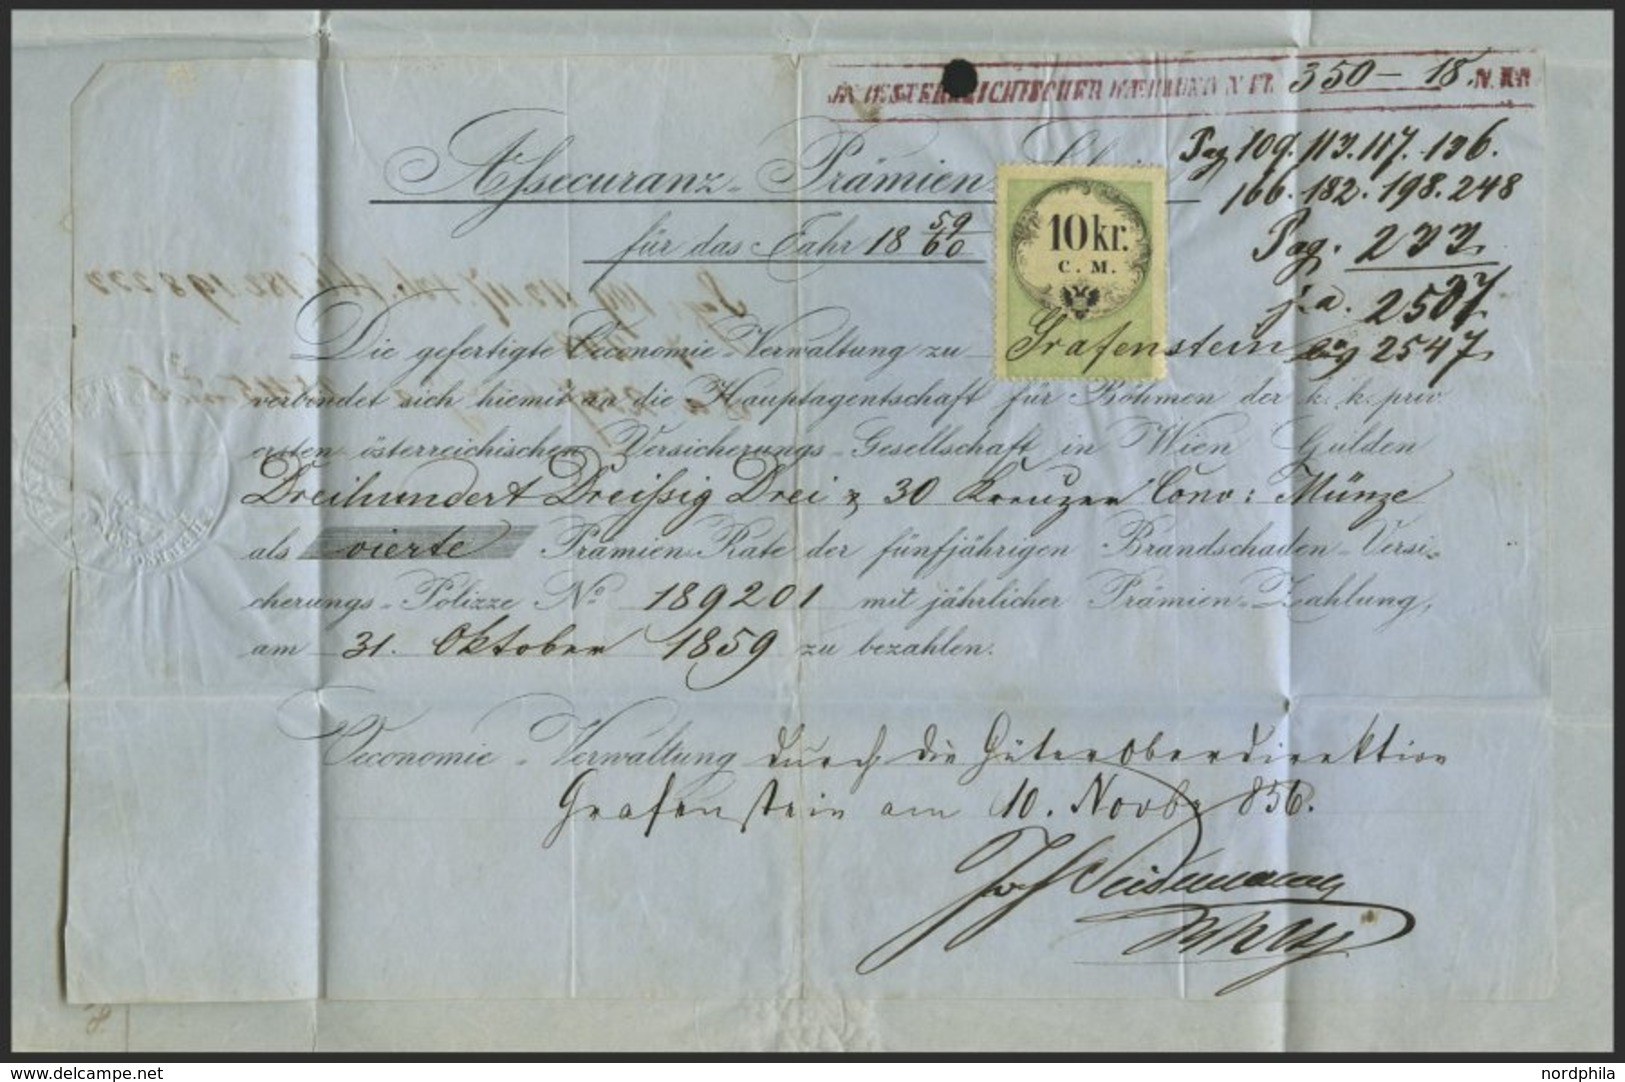 IN OESTERREICHISCHER WAEHRUNG N. Fl. 350 — 18 N. Kr.
Pag 109. 113. 117. 136.
166. 182. 198. 248
Assecuranz-Prämien
für das Jahr 18 59/60
10 kr.
C. M.
Pag. 233
2507
2547
Die gefertigte Oeconomie-Verwaltung zu Grafenstein
verbindet sich hiemit an die Hauptagentschaft für Böhmen der k. k. priv.
ersten österreichischen Versicherungs-Gesellschaft in Wien Gulden
Dreihundert Dreißig Drei & 30 Kreuzer Conv: Münze
als vierte Prämien-Rate der fünfjährigen Brandschaden-Versi-
cherungs-Polizze No 189201 mit jährlicher Prämien-Zahlung,
am 31. Oktober 1859 zu bezahlen.
Oeconomie-Verwaltung durch die Güteroberdirektion
Grafenstein am 10. Novbr 856.
delcampe.net
nordphila